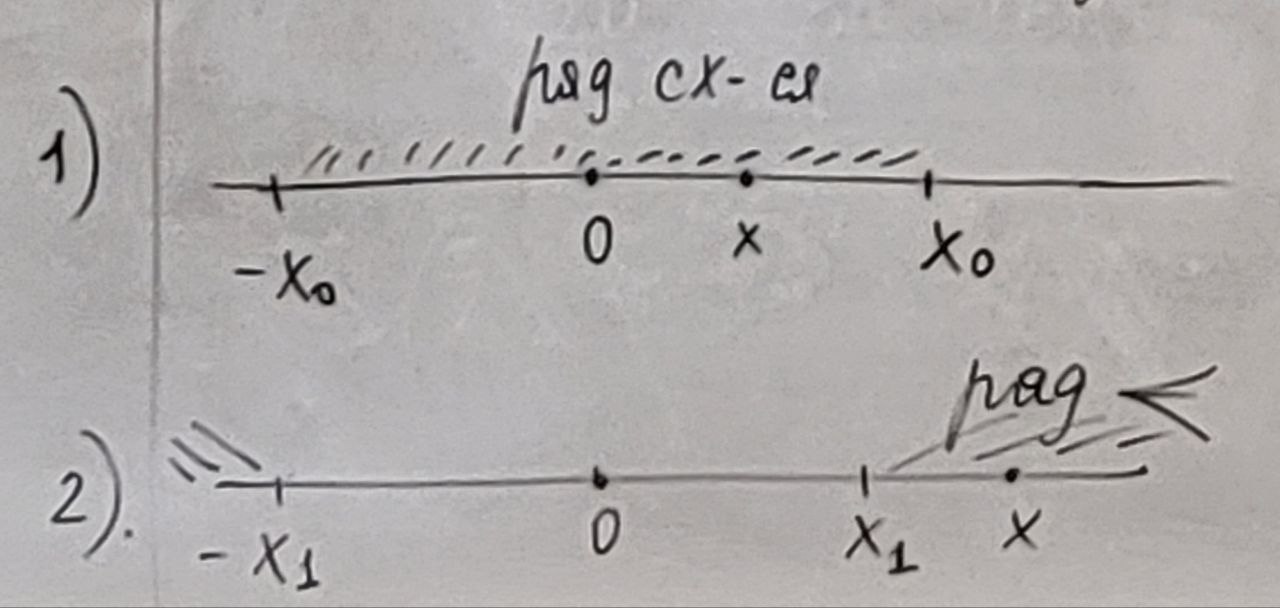 1) ряд сх-ся
-x₀ 0 x x₀
2). ряд <
-x₁ 0 x₁ x